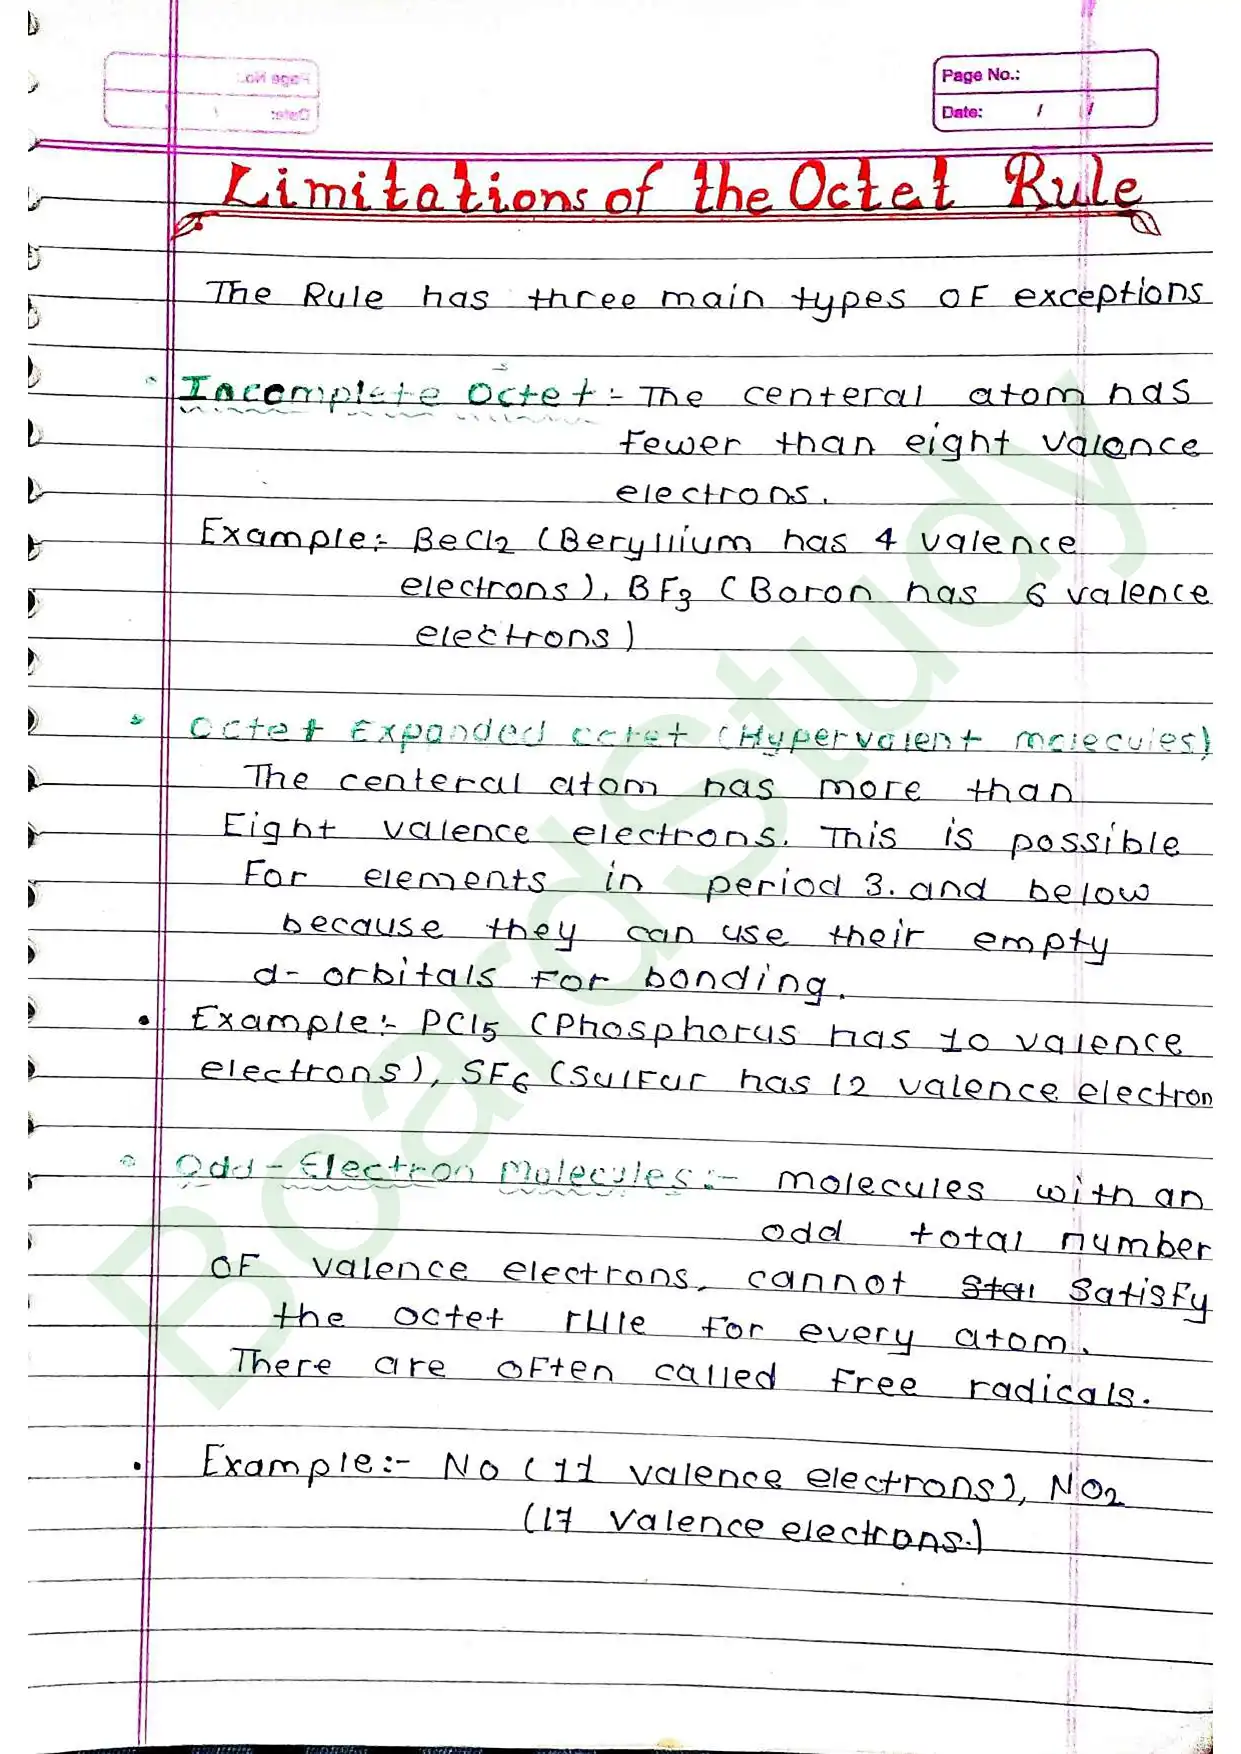 Page No.:
Date: / /
Limitations of the Octet Rule
The Rule has three main types of exceptions
Incomplete Octet:- The centeral atom has
fewer than eight valence
electrons.
Example:- BeCl2 (Beryllium has 4 valence
electrons), BF3 (Boron has 6 valence
electrons)
Octet Expanded octet (Hypervalent molecules)
The centeral atom has more than
Eight valence electrons. This is possible
For elements in period 3. and below
because they can use their empty
d-orbitals for bonding.
• Example:- PCl5 (Phosphorus has 10 valence
electrons), SF6 (Sulfur has 12 valence electron
Odd-Electron Molecules:- molecules with an
odd total number
of valence electrons, cannot Stai Satisfy
the octet rule for every atom.
There are often called free radicals.
• Example:- NO (11 valence electrons), NO2
(17 valence electrons.)
BoardStudy